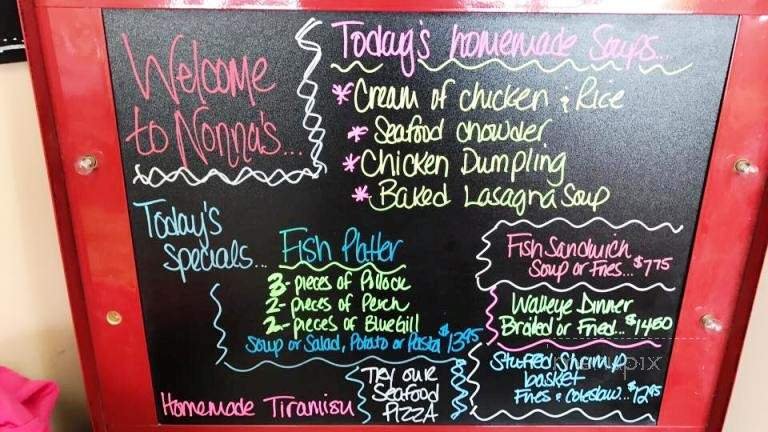 Welcome
to Nonna's...
Today's homemade Soups...
* Cream of chicken & Rice
* Seafood chowder
* Chicken Dumpling
* Baked Lasagna Soup
Today's
Specials...
Fish Platter
3- pieces of Pollock
2- pieces of Perch
2- pieces of BlueGill
Soup or Salad, Potato or Pasta $13.95
Fish Sandwich
Soup or Fries...$7.75
Walleye Dinner
Broiled or Fried...$14.50
Stuffed Shrimp
basket
Fries & Coleslaw...$12.95
Homemade Tiramisu
Try our
Seafood
PIZZA